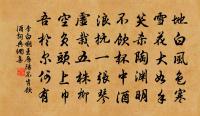 地白風色寒
雪花大如手
笑殺陶淵明
不飲杯中酒
浪撫一張琴
虛栽五株柳
空負頭上巾
吾於爾何有
李白嘲王歷陽不肯飲
酒